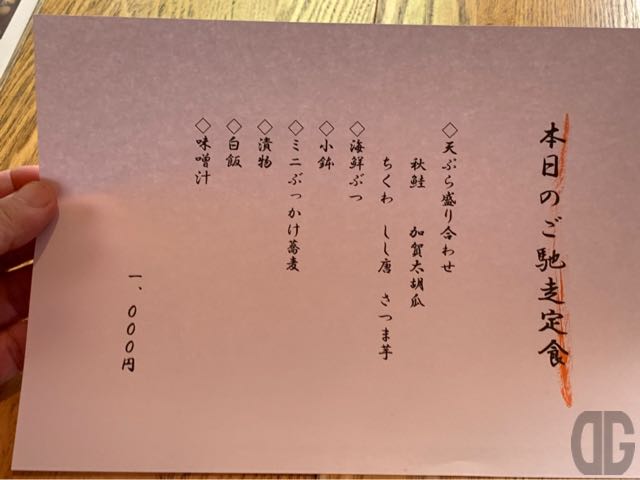 本日のご馳走定食
◇天ぷら盛り合わせ
秋鮭 加賀太胡瓜
ちくわ しし唐 さつま芋
◇海鮮ぶつ
◇小鉢
◇ミニぶっかけ蕎麦
◇漬物
◇白飯
◇味噌汁
一、〇〇〇円
DG